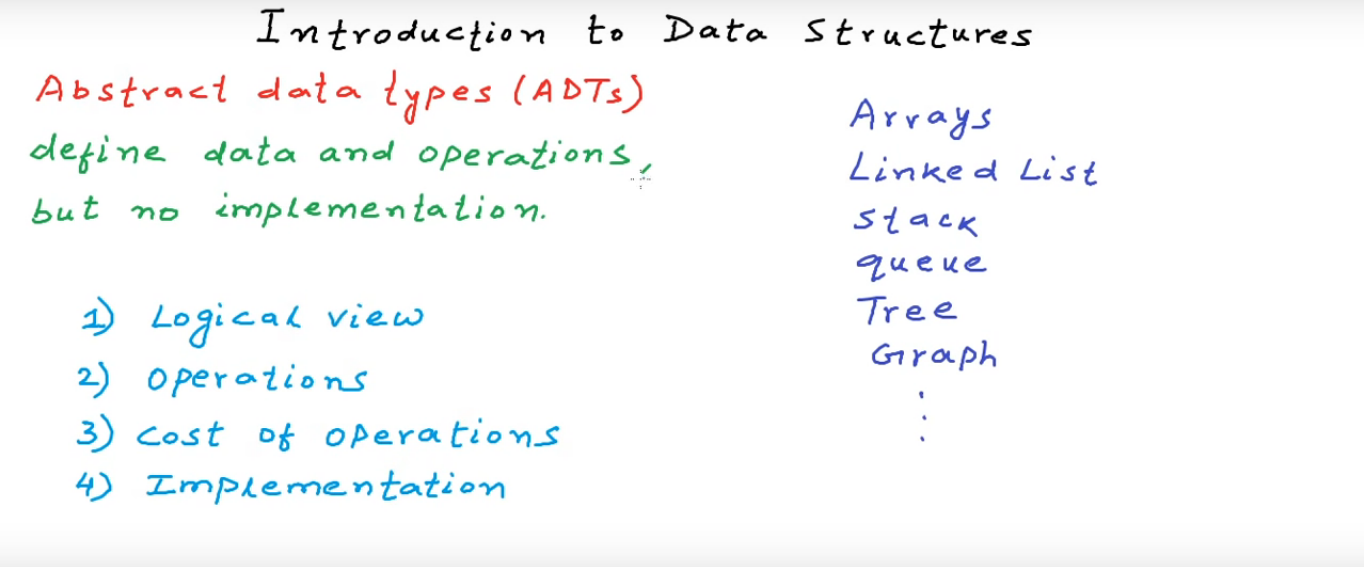 Introduction to Data Structures
Abstract data types (ADTs)
define data and operations,
but no implementation.
1) Logical view
2) operations
3) cost of operations
4) Implementation
Arrays
Linked List
stack
queue
Tree
Graph
⋮